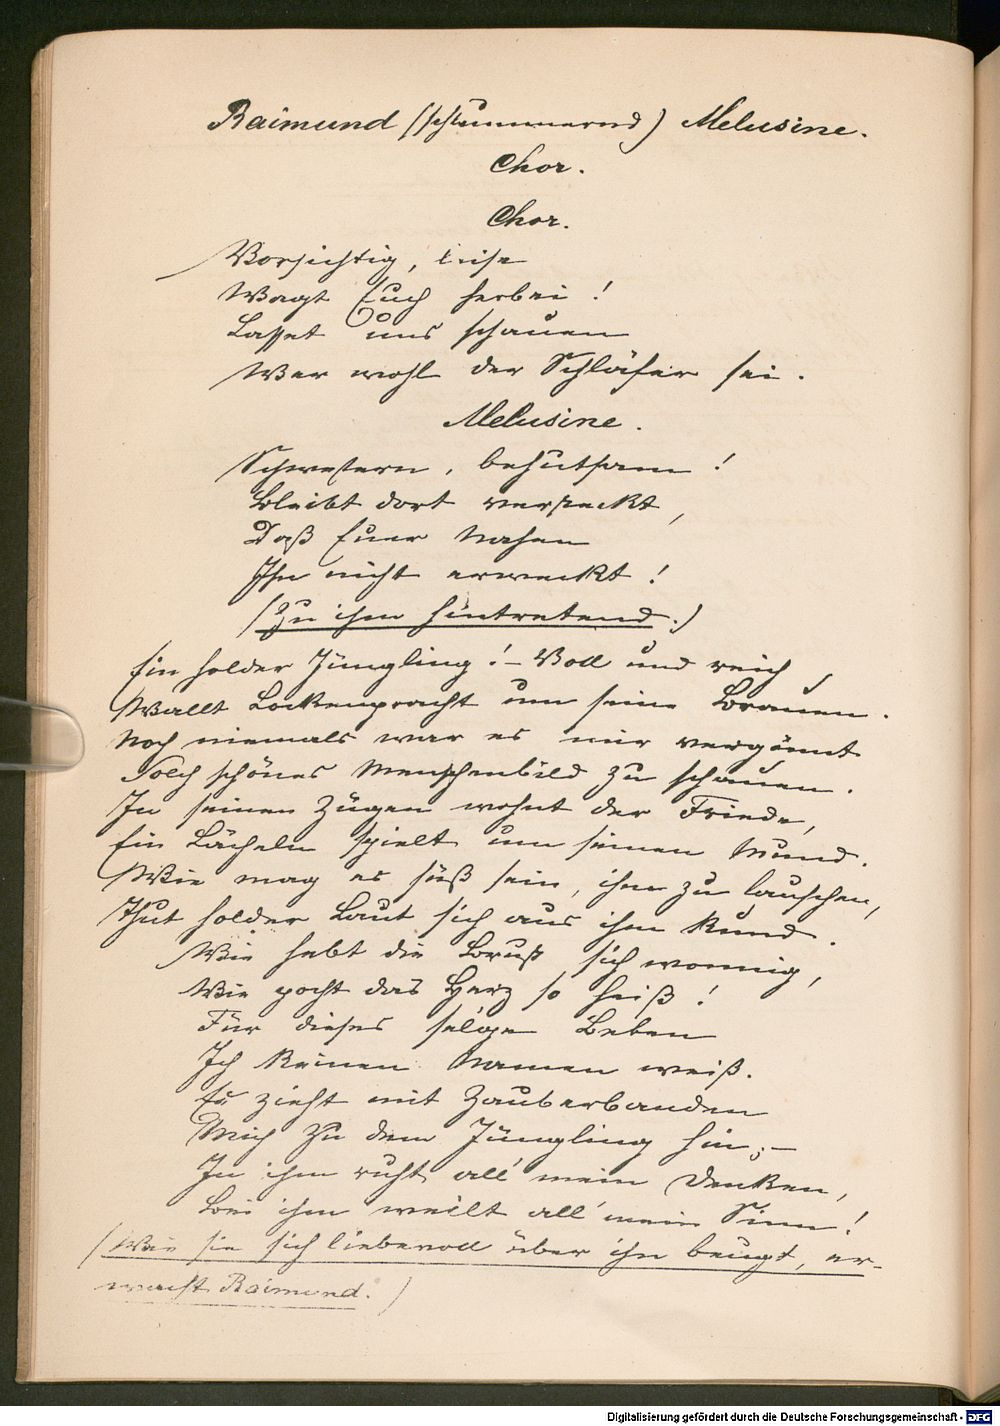 Raimund (schlummernd) Melusine.
Chor.
Chor.
Vorsichtig, leise
Wagt Euch herbei!
Lasset uns schauen
Wer wohl der Schläfer sei.
Melusine.
Schwestern, behutsam!
Bleibt dort versteckt,
Daß Euer Nahen
Ihn nicht erweckt!
(Zu ihm hintretend.)
Ein holder Jüngling! – Voll und reich
Wallt Lockenpracht um seine Brauen.
Noch niemals war es mir vergönnt
Solch schönes Menschenbild zu schauen.
In seinen Zügen wohnt der Friede,
Ein Lächeln spielt um seinen Mund.
Wie mag es süß sein, ihm zu lauschen,
Thut holder Laut sich aus ihm kund.
Wie hebt die Brust sich wonnig,
Wie pocht das Herz so heiß!
Für dieses sel'ge Beben
Ich keinen Namen weiß.
Es zieht mit Zauberbanden
Mich zu dem Jüngling hin; –
In ihm ruht all' mein Denken,
Bei ihm weilt all' mein Sinn!
(Wie sie sich liebevoll über ihn beugt, er-
wacht Raimund.)
Digitalisierung gefördert durch die Deutsche Forschungsgemeinschaft - DFG